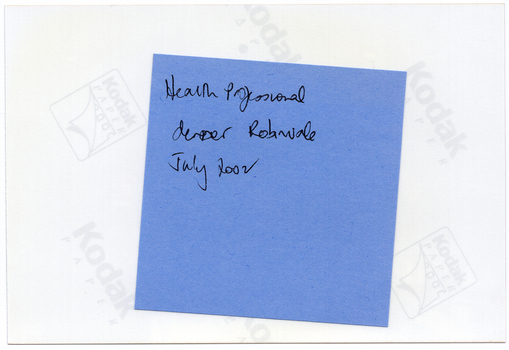 Kodak
PAPER
Kodak
Kodak
PAPER
Health Professional
Robinvale
July 2002
Kodak
PAPER
Kodak
PAPER